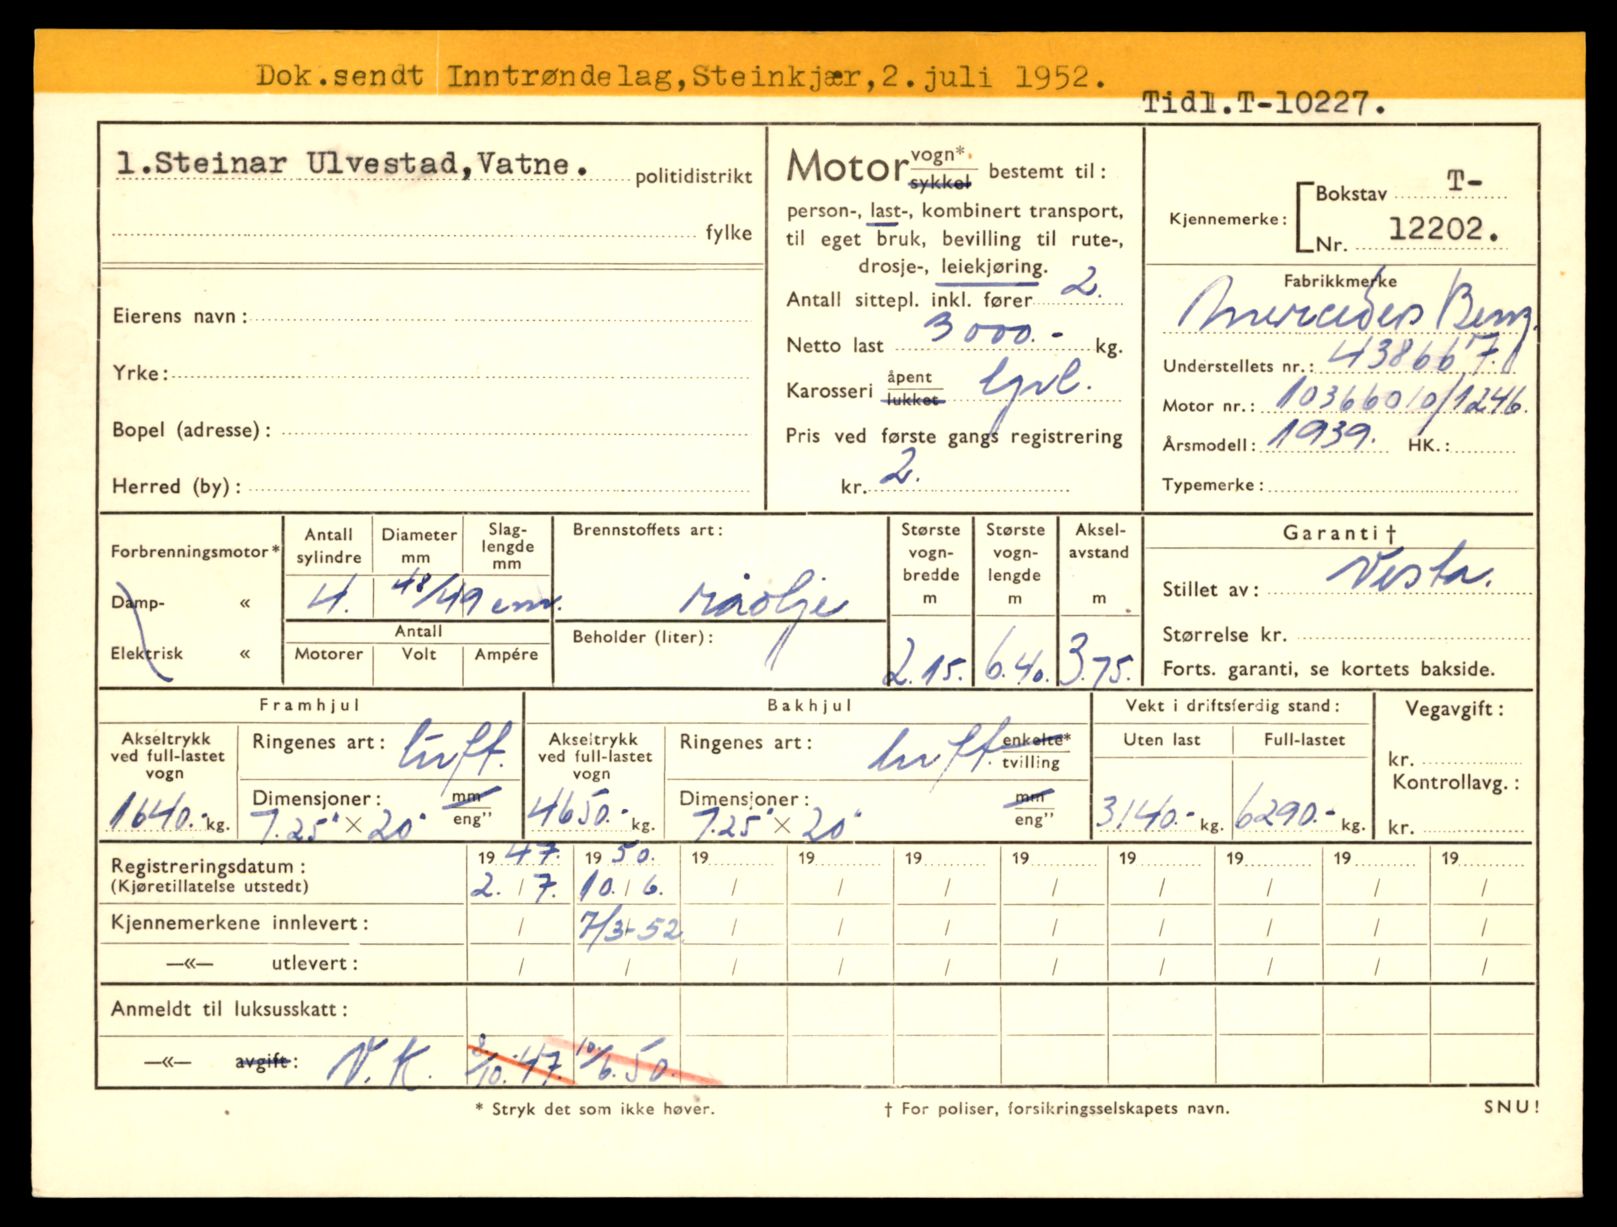 Dok.sendt Inntrøndelag,Steinkjær,2.juli 1952.
Tidl.T-10227.
1.Steinar Ulvestad,Vatne. politidistrikt
fylke
Eierens navn:
Yrke:
Bopel (adresse):
Herred (by):
Motor vogn* sykkel bestemt til:
person-, last-, kombinert transport,
til eget bruk, bevilling til rute-,
drosje-, leiekjøring.
Antall sittepl. inkl. fører 2.
Netto last 3000.- kg.
Karosseri åpent lukket
Pris ved første gangs registrering
kr. 2.
Kjennemerke: Bokstav T-
Nr. 12202.
Fabrikkmerke
Mercedes Benz.
Understellets nr.: 438667.
Motor nr.: 10366010/1246.
Årsmodell: 1939. HK.:
Typemerke:
Forbrenningsmotor*
Damp- «
Elektrisk «
Antall sylindre
Diameter mm
Slag-lengde mm
4. 48/49 cm.
Antall
Motorer Volt Ampére
Brennstoffets art:
råolje
Beholder (liter):
Største vogn-bredde m
Største vogn-lengde m
Aksel-avstand m
2.15. 6.40. 3.75.
Garanti†
Stillet av: Vesta.
Størrelse kr.
Forts. garanti, se kortets bakside.
Framhjul
Akseltrykk ved full-lastet vogn
1640.- kg.
Ringenes art: luft.
Dimensjoner: mm eng"
7.25" × 20"
Bakhjul
Akseltrykk ved full-lastet vogn
4650.- kg.
Ringenes art: luft. enkelte* tvilling
Dimensjoner: mm eng"
7.25" × 20"
Vekt i driftsferdig stand:
Uten last Full-lastet
3140.- kg. 6290.- kg.
Vegavgift:
kr.
Kontrollavg.:
kr.
Registreringsdatum: 1947. 1950. 19 19 19 19 19 19 19 19
(Kjøretillatelse utstedt) 2./7. 10./6. / / / / / / / /
Kjennemerkene innlevert: / 7/3-52 / / / / / / / /
—«— utlevert: / / / / / / / / / /
Anmeldt til luksusskatt:
—«— avgift: V.K. 8/10.-47. 10/6.50.
* Stryk det som ikke høver.
† For poliser, forsikringsselskapets navn.
SNU!